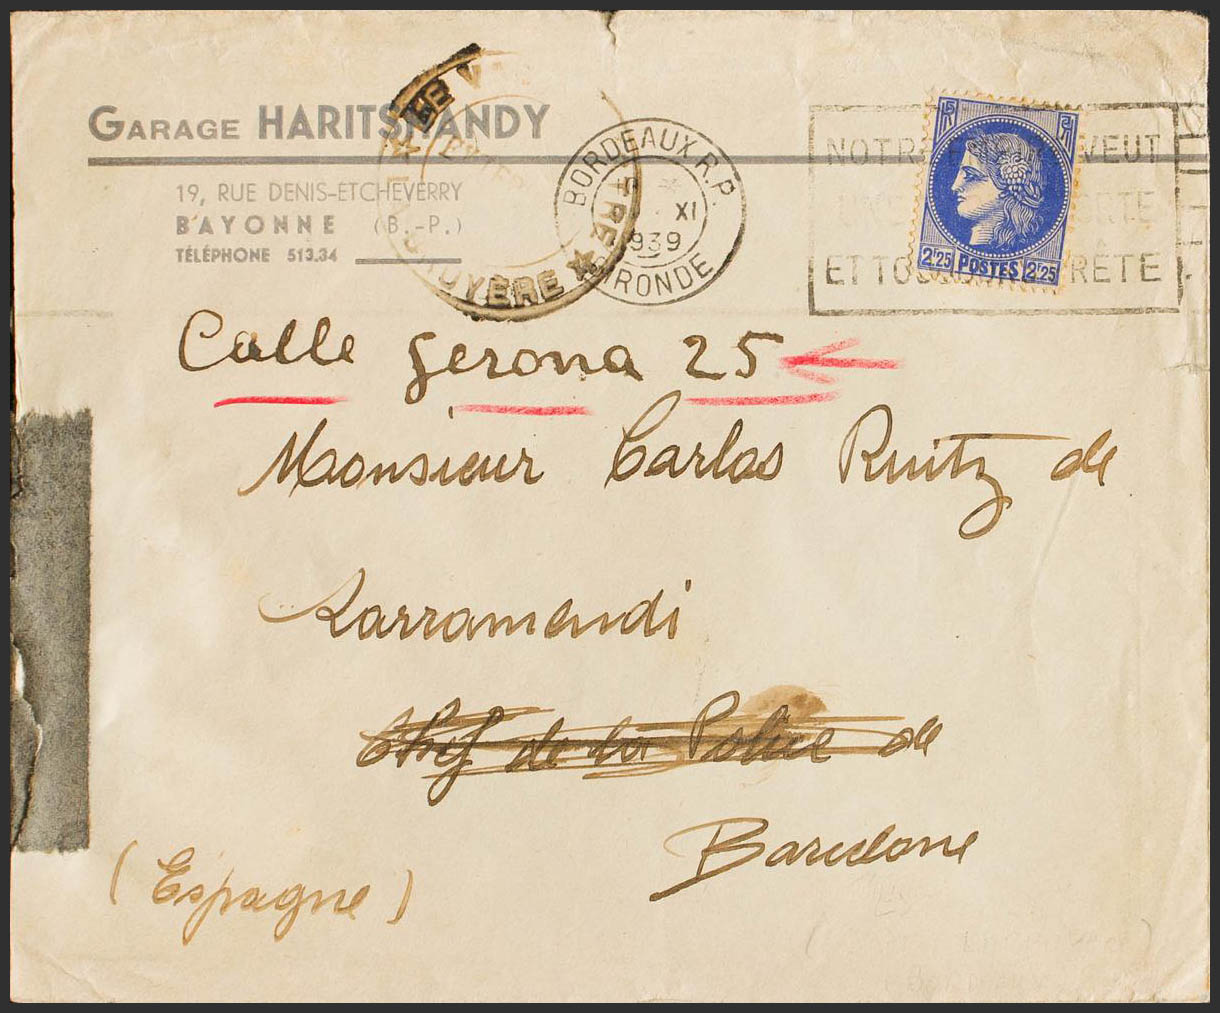 GARAGE HARITSHANDY
19, RUE DENIS-ETCHEVERRY
BAYONNE (B.-P.)
TÉLÉPHONE 513.34
BORDEAUX R.P.
XI
1939
GIRONDE
BRUYÈRE
NOTRE VEUT
ET TOUS ARRÊTE
2F25 POSTES 2F25
Calle Gerona 25
Monsieur Carlos Ruitz de
Larramendi
Chef de la Police de
Barcelone
(Espagne)